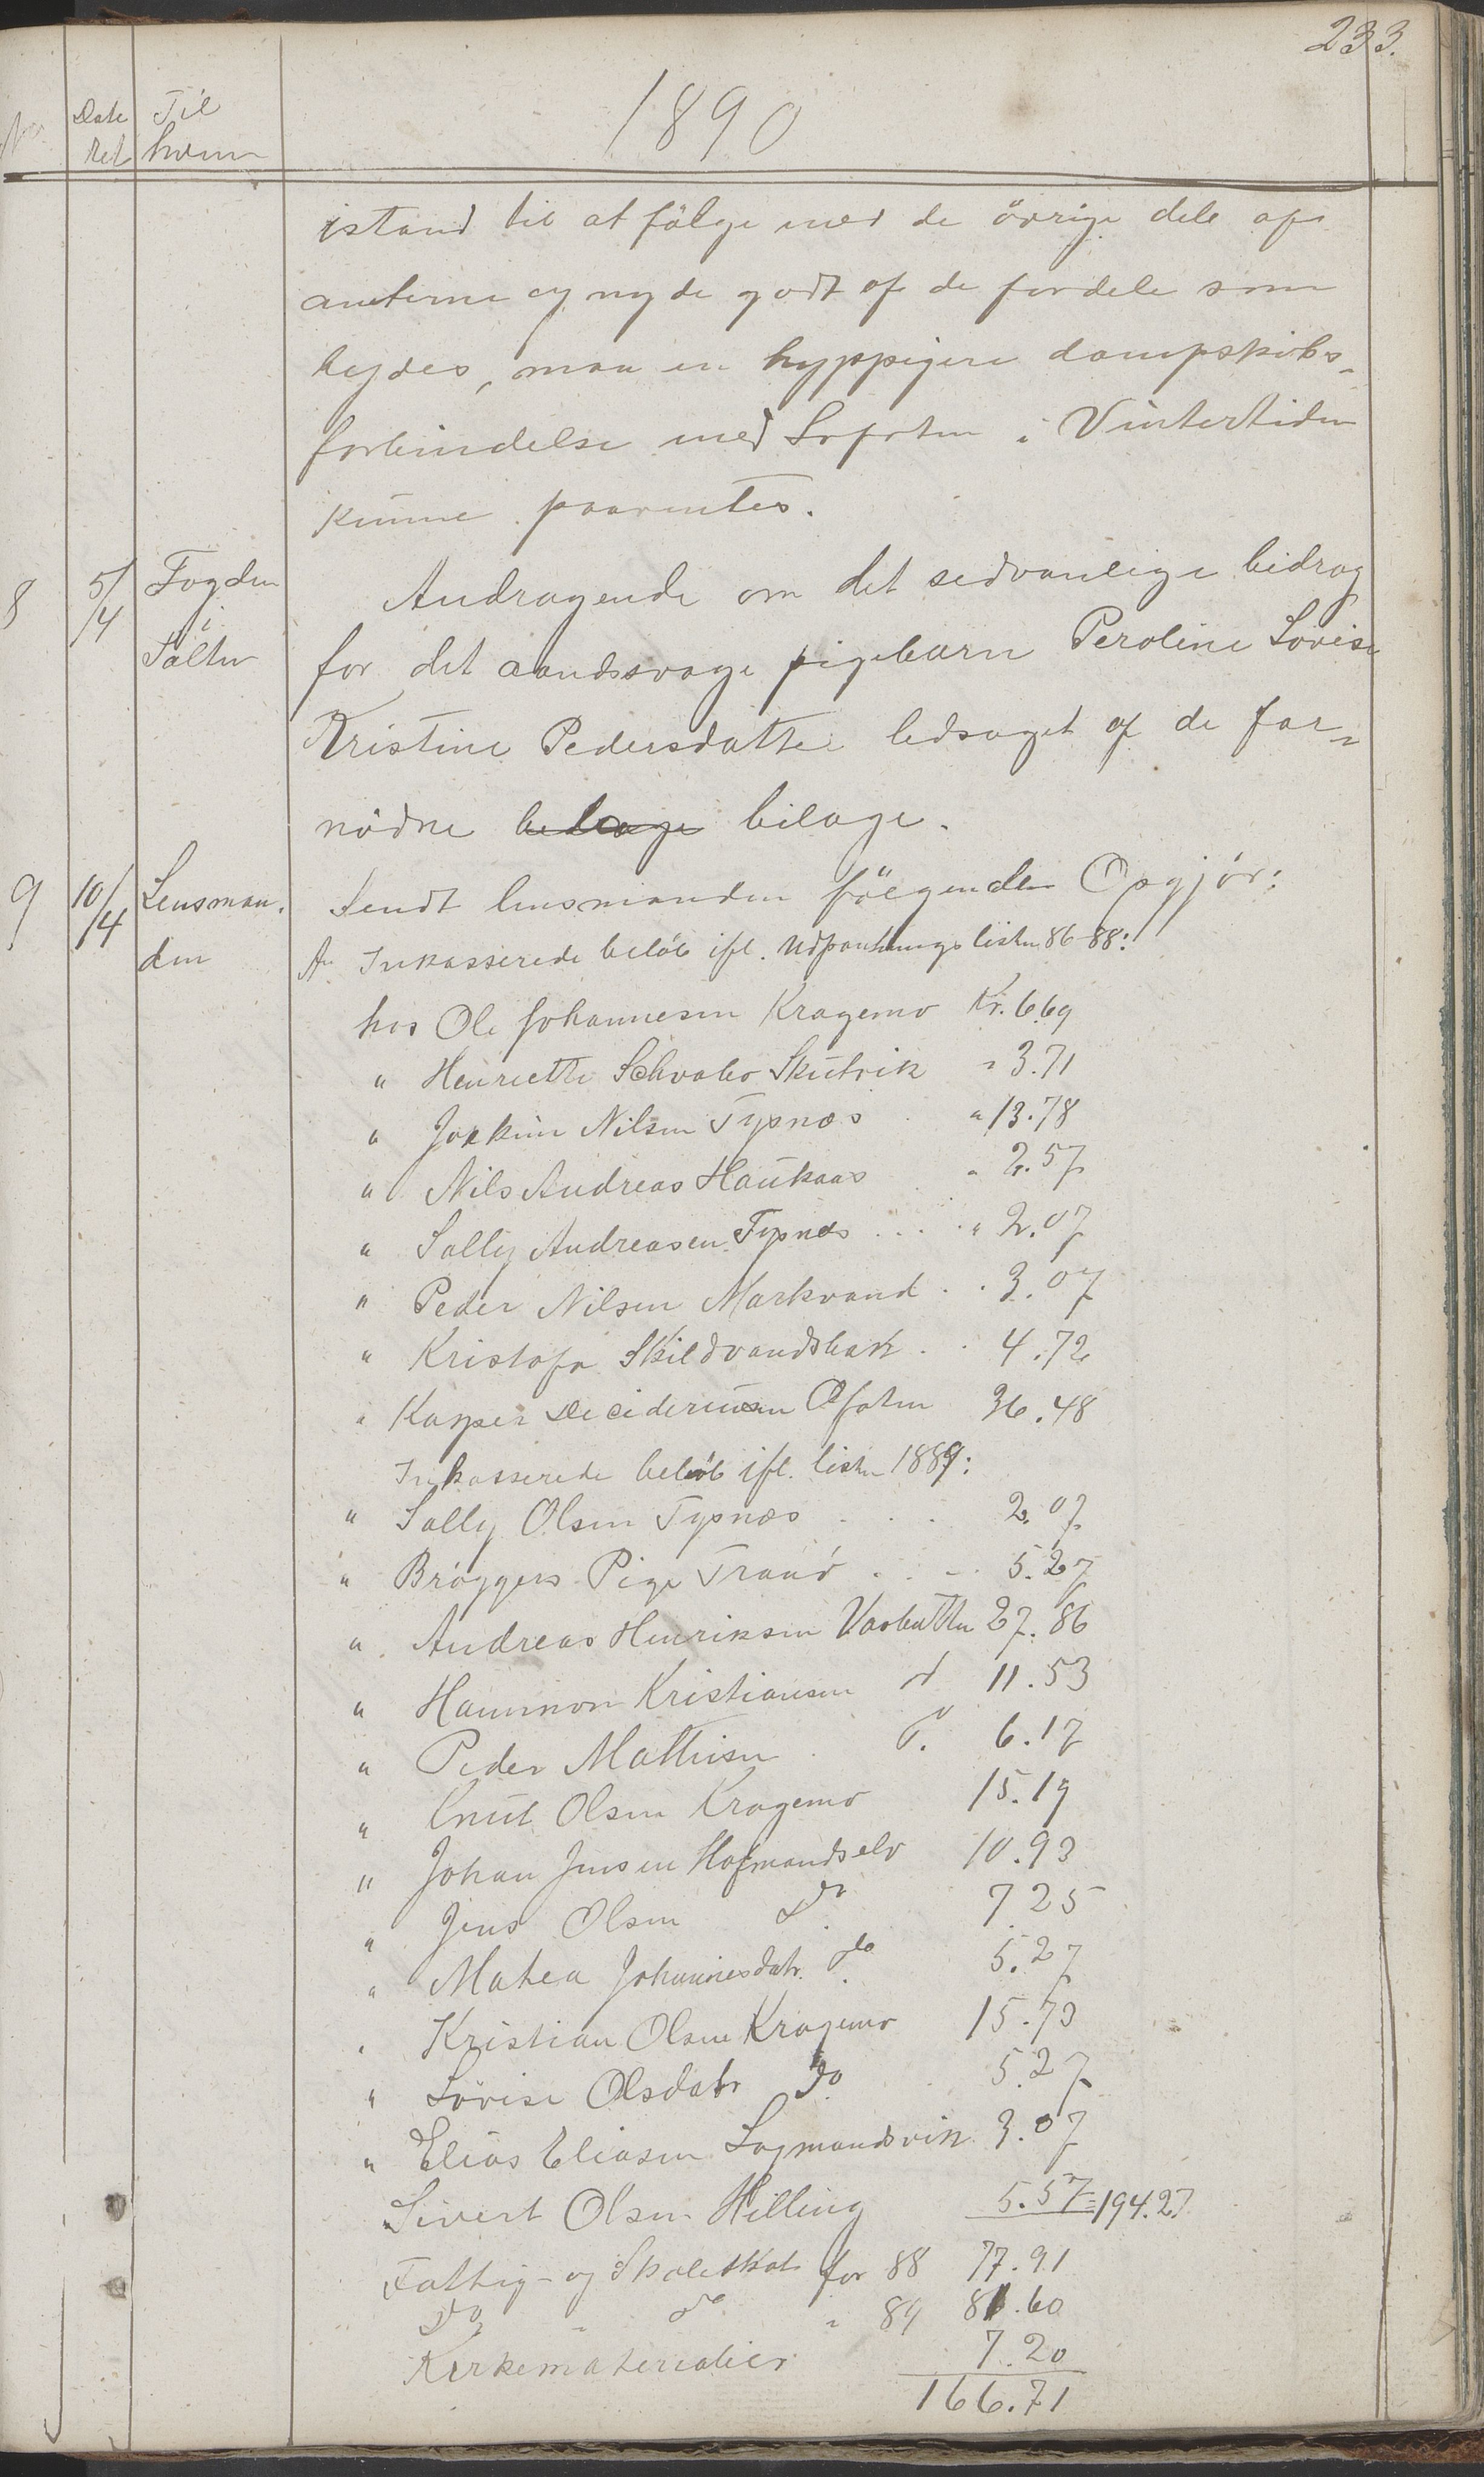 233.
1890
No
Date
ret
Til
hvem
istand til at fölge med de övrige dele af
amterne og nyde godt af de fordele som
bydes, maa en hyppigere dampskibs-
forbindelse med Lofoten i Vintertiden
kunne paaventes.
8 5/4 Fogden i Salten
Andragende om det sedvanlige bidrag
for det aandssvage pigebarn Peroline Lovise
Kristine Pedersdatter ledsaget af de for-
nödne belage bilage.
9 10/4 Lensman-
den
Sendt lensmanden fölgende Opgjör:
An Inkasserede belöb ifl. Udpantningslisten 86-88:
hos Ole Johannesen Kragemo Kr. 6.69
" Henriette Schvabo Skutvik " 3.71
" Joakim Nilsen Typnæs " 13.78
" Nils Andreas Haukaas " 2.57
" Sally Andreasen Typnæs " 2.07
" Peder Nilsen Markvand 3.07
" Kristofa Skildvandsbak 4.72
" Kasper Decideriussen Ofoten 36.48
Inkasserede belöb ifl. listen 1889:
" Sally Olsen Typnæs 2.07
" Bröggers Pige Tranö 5.27
" Andreas Henriksen Vasbotten 27.86
" Hammon Kristiansen d 11.53
" Peder Mathisen do. 6.17
" Knut Olsen Kragemo 15.19
" Johan Jensen Hofmandselv 10.93
" Jens Olsen do. 7.25
" Matea Johannesdatr. do. 5.27
" Kristian Olsen Kragemo 15.73
" Lovise Olsdatr do. 5.27
" Elias Eliasen Lagmandsvik 3.07
" Sivert Olsen Hilling 5.57 = 194.27
Fattig- og Skoleskat for 88 77.91
Do " do " 89 81.60
Kirkematerialier 7.20
166.71